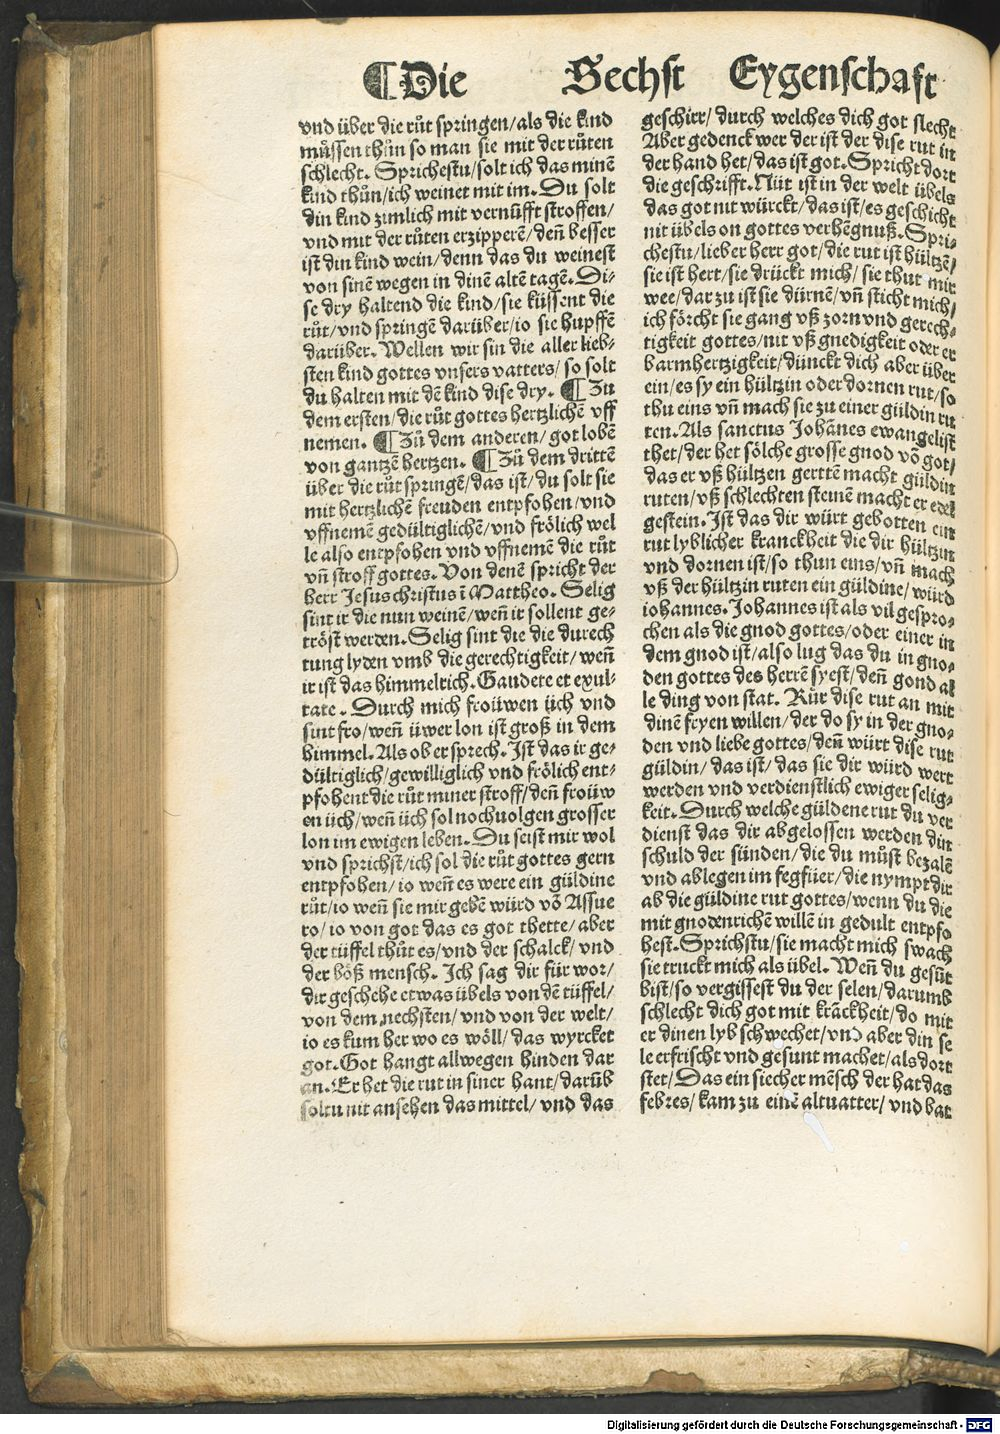 ¶Die Sechst Eygenschaft
vnd über die růt springen/als die kind
müssen thůn so man sie mit der růten
schlecht. Sprichestu/solt ich das minē
kind thůn/ich weinet mit im. Du solt
din kind zimlich mit vernüfft stroffen/
vnd mit der růten erzipperē/deñ besser
ist din kind wein/denn das du weinest
von sinē wegen in dinē altē tagē. Di-
se dry haltend die kind/sie küssent die
růt/vnd springē darüber/io sie hupffē
darüber. Wellen wir sin die aller lieb-
sten kind gottes vnsers vatters/so solt
du halten mit dē kind dise dry. ¶Zů
dem ersten/die růt gottes hertzlichē vff
nemen. ¶Zů dem anderen/got lobē
von gantzē hertzen. ¶Zů dem drittē
über die růt springē/das ist/du solt sie
mit hertzlichē freuden entpfohen/vnd
vffnemē gedültiglichē/vnd frölich wel
le also entpfohen vnd vffnemē die růt
vñ stroff gottes. Von denē spricht der
herr Jesus christus ī Mattheo. Selig
sint ir die nun weinē/weñ ir sollent ge-
tröst werden. Selig sint die die durech
tung lyden vmb die gerechtigkeit/weñ
ir ist das himmelrich. Gaudete et exul-
tate. Durch mich froüwen üch vnd
sint fro/weñ üwer lon ist groß in dem
himmel. Als ob er sprech. Ist das ir ge-
dültiglich/gewilliglich vnd frölich ent-
pfohent die růt miner stroff/deñ froüw
en üch/weñ üch sol nochuolgen grosser
lon im ewigen leben. Du seist mir wol
vnd sprichst/ich sol die růt gottes gern
entpfohen/io weñ es were ein güldine
růt/io weñ sie mir gebē würd võ Assue
ro/io von got das es got thette/aber
der tüffel thůt es/vnd der schalck/vnd
der böß mensch. Ich sag dir für wor/
dir geschehe etwas übels von dē tüffel/
von dem nechsten/vnd von der welt/
io es kum her wo es wöll/das wyrcket
got. Got hangt allwegen hinden dar
an. Er het die rut in siner hant/darūb
soltu nit ansehen das mittel/vnd das
geschirr/durch welches dich got slecht
Aber gedenck wer der ist der dise rut in
der hand het/das ist got. Spricht dort
die geschrifft. Nüt ist in der welt übels
das got nit würckt/das ist/es geschicht
nit übels on gottes verhēgnuß. Spri-
chestu/lieber herr got/die rut ist hültzē/
sie ist hert/sie drückt mich/sie thut mir
wee/dar zu ist sie dürnē/vñ sticht mich/
ich förcht sie gang vß zorn vnd gerech-
tigkeit gottes/nit vß gnedigkeit oder er
barmhertzigkeit/dünckt dich aber über
ein/es sy ein hültzin oder dornen rut/so
thu eins vñ mach sie zu einer güldin ru
ten. Als sanctus Johānes ewangelist
thet/der het sölche grosse gnod võ got/
das er vß hültzen gerttē macht güldin
ruten/vß schlechten steinē macht er edel
gestein. Ist das dir würt gebotten ein
rut lyblicher kranckheit die dir hültzin
vnd dornen ist/so thun eins/vñ mach
vß der hültzin ruten ein güldine/würd
iohannes. Johannes ist als vil gespro-
chen als die gnod gottes/oder einer in
dem gnod ist/also lug das du in gno-
den gottes des herrē syest/deñ gond al
le ding von stat. Rür dise rut an mit
dinē fryen willen/der do sy in der gno-
den vnd liebe gottes/deñ würt dise rut
güldin/das ist/das sie dir würd wert
werden vnd verdienstlich ewiger selig-
keit. Durch welche güldene rut du ver
dienst das dir abgelossen werden din
schuld der sünden/die du můst bezalē
vnd ablegen im fegfüer/die nympt dir
ab die güldine rut gottes/wenn du die
mit gnodenrichē willē in gedult entpfo
hest. Sprichstu/sie macht mich swach
sie truckt mich als übel. Weñ du gesūt
bist/so vergissest du der selen/darumb
schlecht dich got mit krāckheit/do mit
er dinen lyb schwechet/vnd aber din se
le erfrischt vnd gesunt machet/als dort
stet/Das ein siecher mēsch der hat das
febres/kam zu einē altuatter/vnd bat
Digitalisierung gefördert durch die Deutsche Forschungsgemeinschaft - DFG